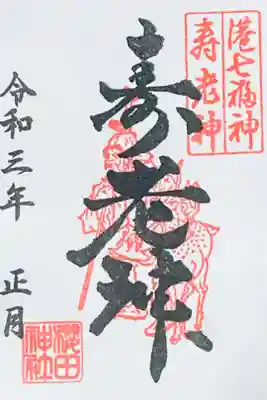 港七福神
寿老神
寿老神
令和三年 正月
櫻田
神社